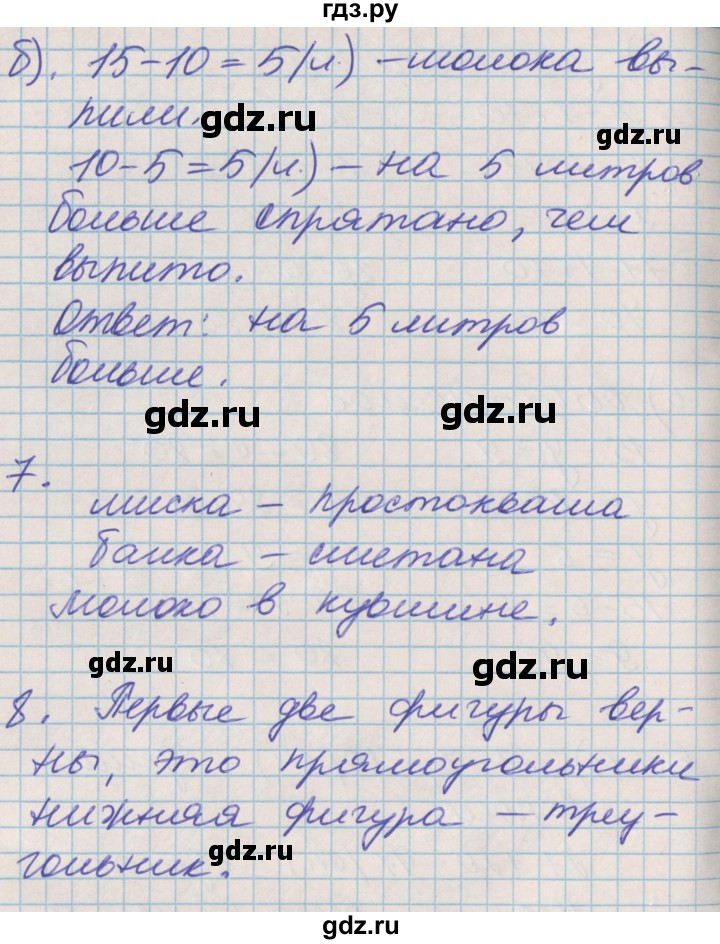 гдз.ру
б). 15-10=5(л.) - молока вы-
пили.
gdz.ru
gdz.ru
10-5=5(л.) - на 5 литров
больше спрятано, чем
выпито.
Ответ: на 5 литров
больше.
gdz.ru
gdz.ru
7.
миска - простокваша
банка - сметана
молоко в кувшине.
gdz.ru
gdz.ru
8. Первые две фигуры вер-
ны, это прямоугольники
нижняя фигура - треу-
гольник.
gdz.ru
gdz.ru